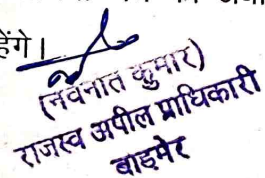 हेंगे।
(नवनीत कुमार)
राजस्व अपील प्राधिकारी
बाड़मेर